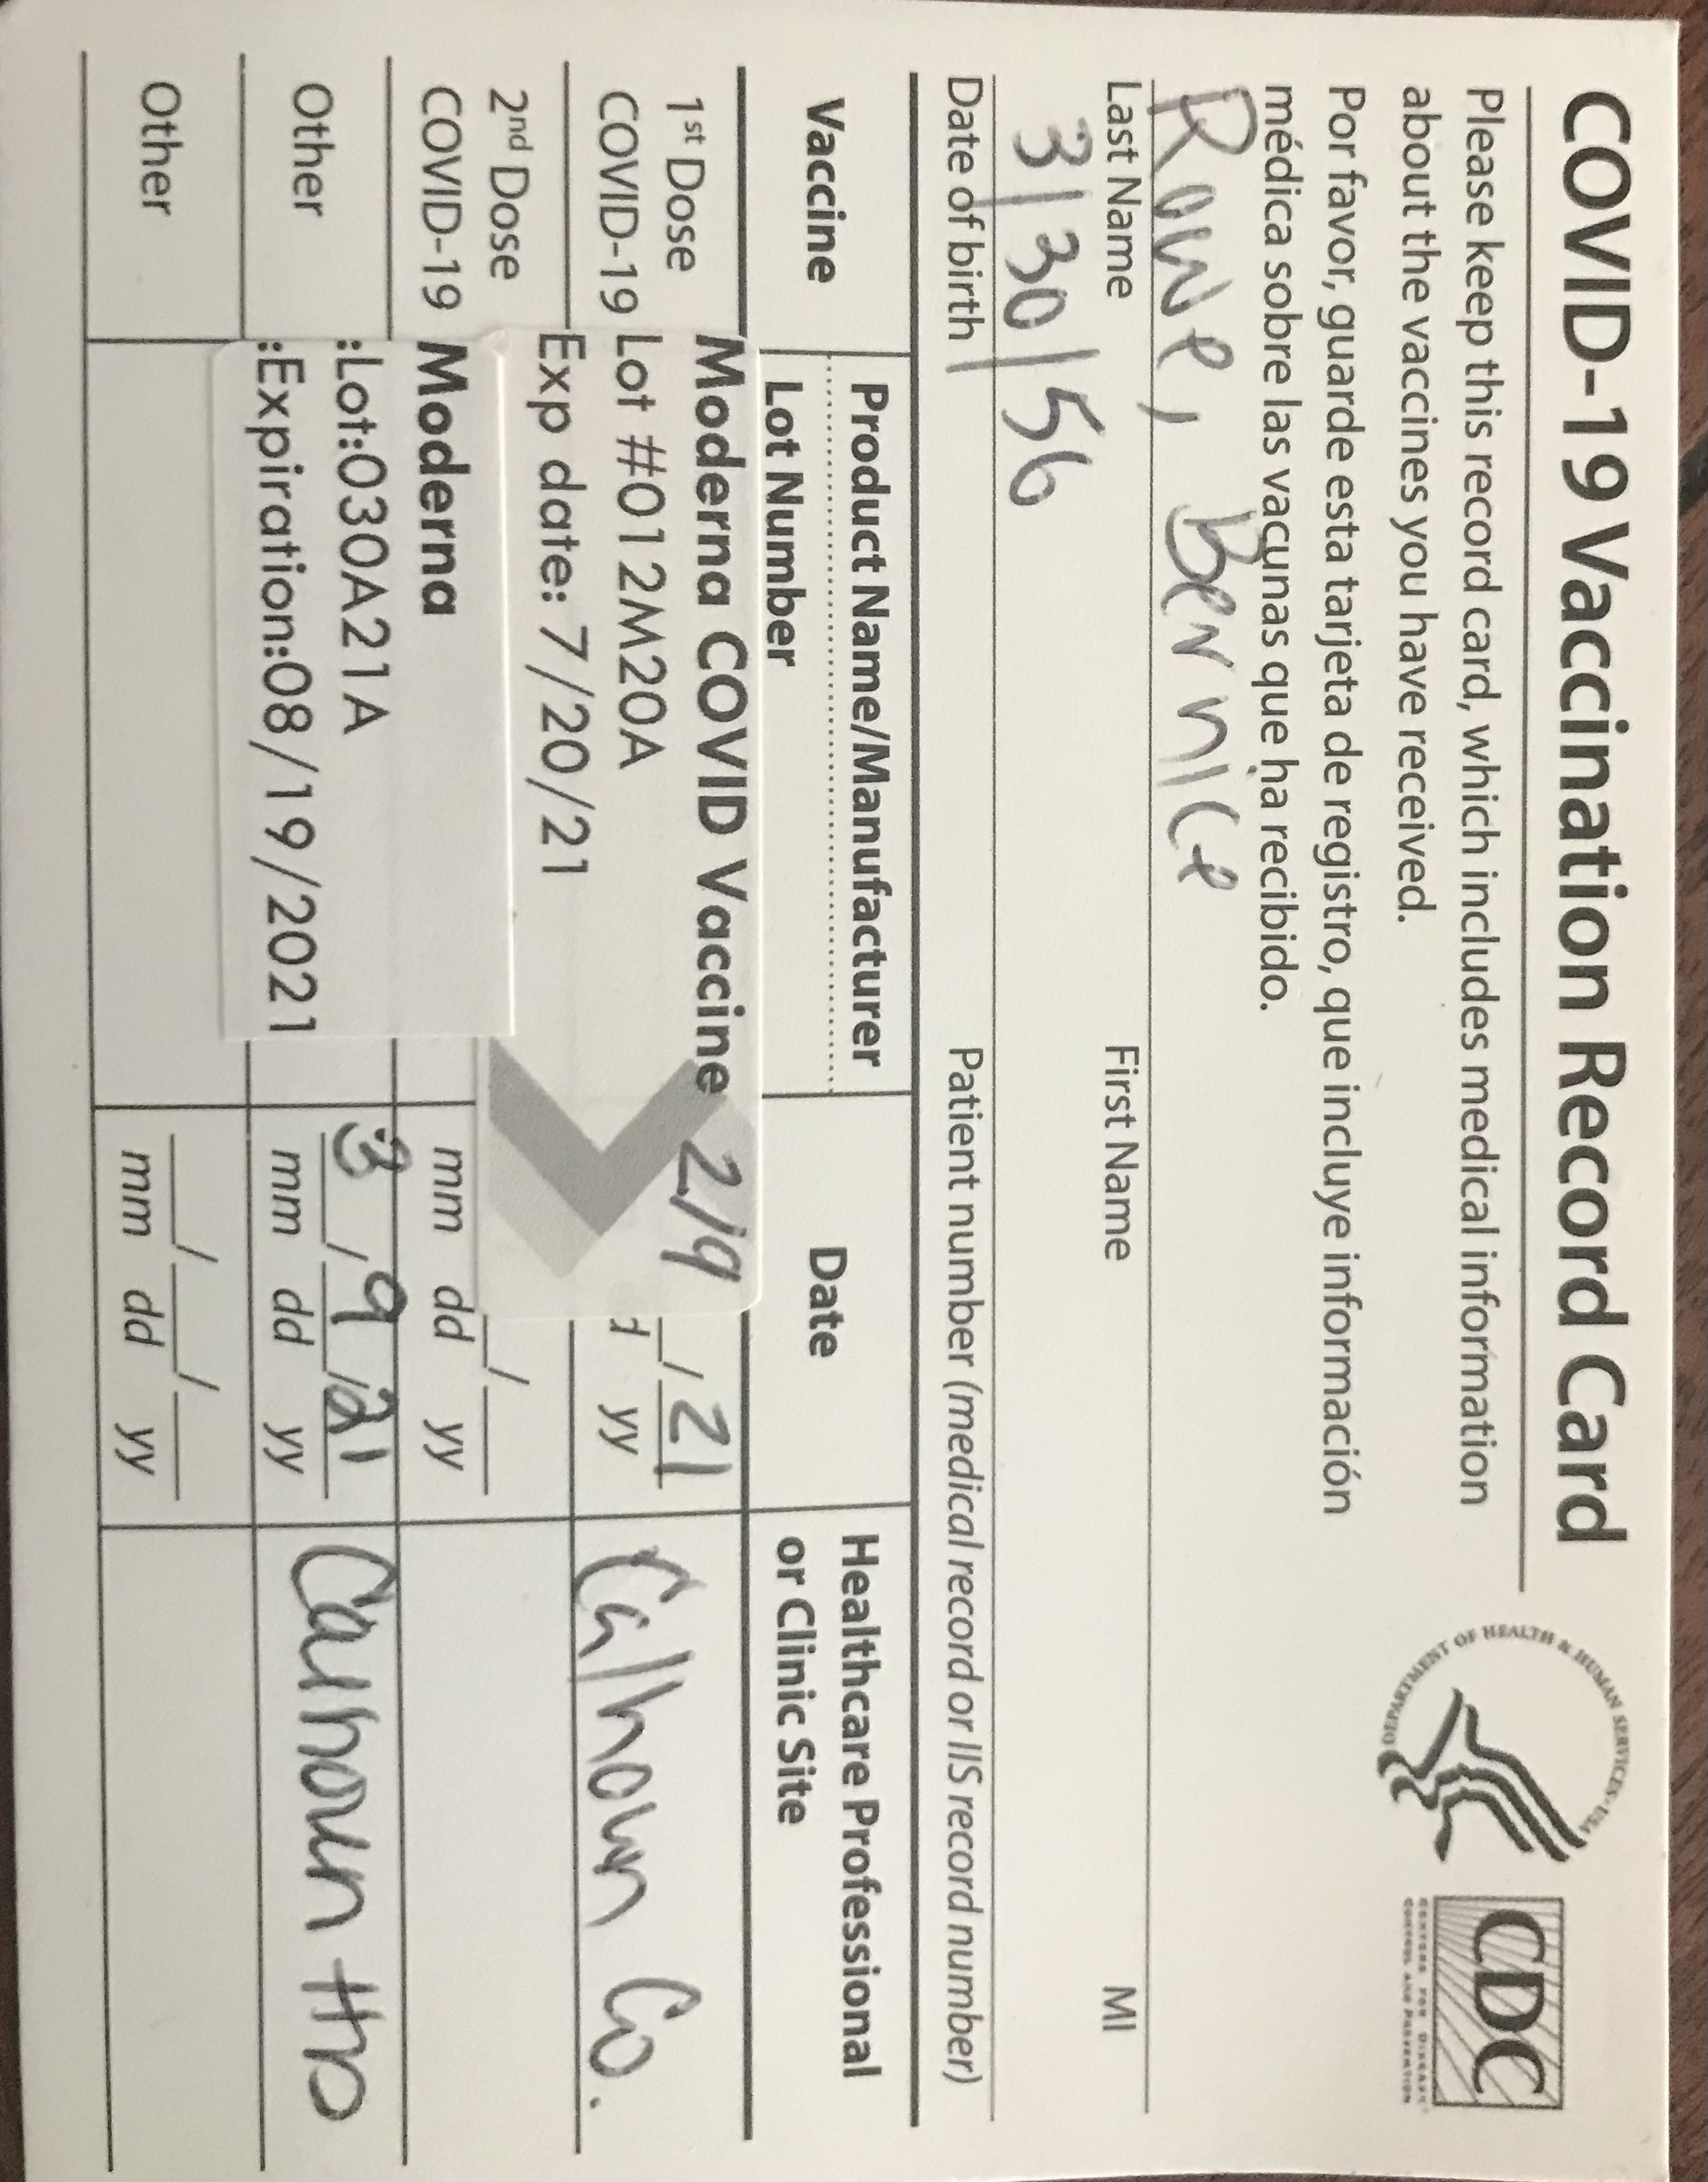 COVID-19 Vaccination Record Card
Please keep this record card, which includes medical information
about the vaccines you have received.
Por favor, guarde esta tarjeta de registro, que incluye información
médica sobre las vacunas que ha recibido.
DEPARTMENT OF HEALTH & HUMAN SERVICES • USA
CDC
CENTERS FOR DISEASE
CONTROL AND PREVENTION
Rowe, Bernice
Last Name First Name MI
3/30/56
Date of birth Patient number (medical record or IIS record number)
Vaccine Product Name/Manufacturer Date Healthcare Professional
Lot Number or Clinic Site
1st Dose
COVID-19
Moderna COVID Vaccine 2/9 / 21
Lot #012M20A
Exp date: 7/20/21
d yy
Calhoun Co.
2nd Dose
COVID-19
/
mm dd yy
Moderna
:Lot:030A21A
:Expiration:08/19/2021
Other
3 / 9 / 21
mm dd yy
Calhoun HD
Other
/ /
mm dd yy